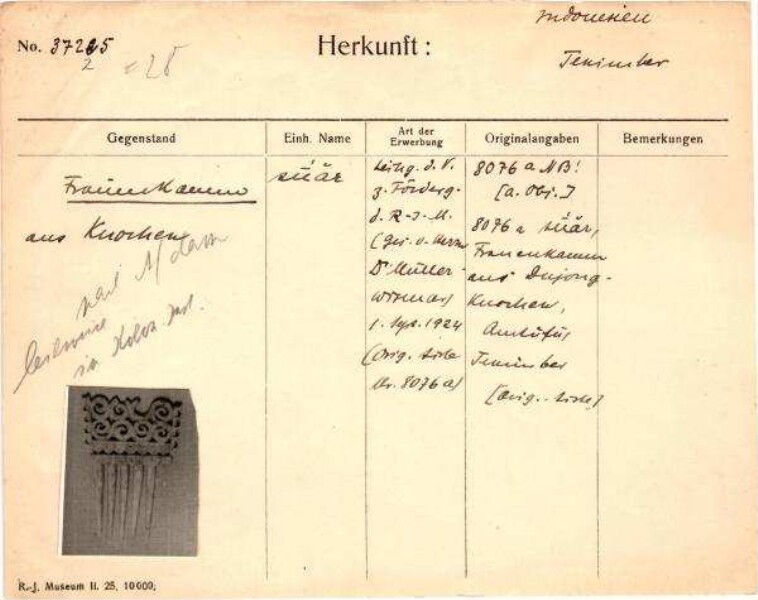 No. 37225
2 = 28
Herkunft:
Indonesien
Tenimber
Gegenstand
Einh. Name
Art der Erwerbung
Originalangaben
Bemerkungen
Frauenkamm
aus Knochen
nach A'dam
leihweise
im Kolon. Inst.
süär
Leihg. d. V.
z. Förderg.
d. R.-J.-M.
(Ges. v. Herrn
Dr Müller-
wismar)
1. Sept. 1924
(Orig. Liste
Nr. 8076 a)
8076 a NB!
[a. Obj.]
8076 a süär,
Frauenkamm
aus Dujong-
Knochen,
Tenimber
[Orig.-Liste]
R.-J. Museum II. 25, 10000;